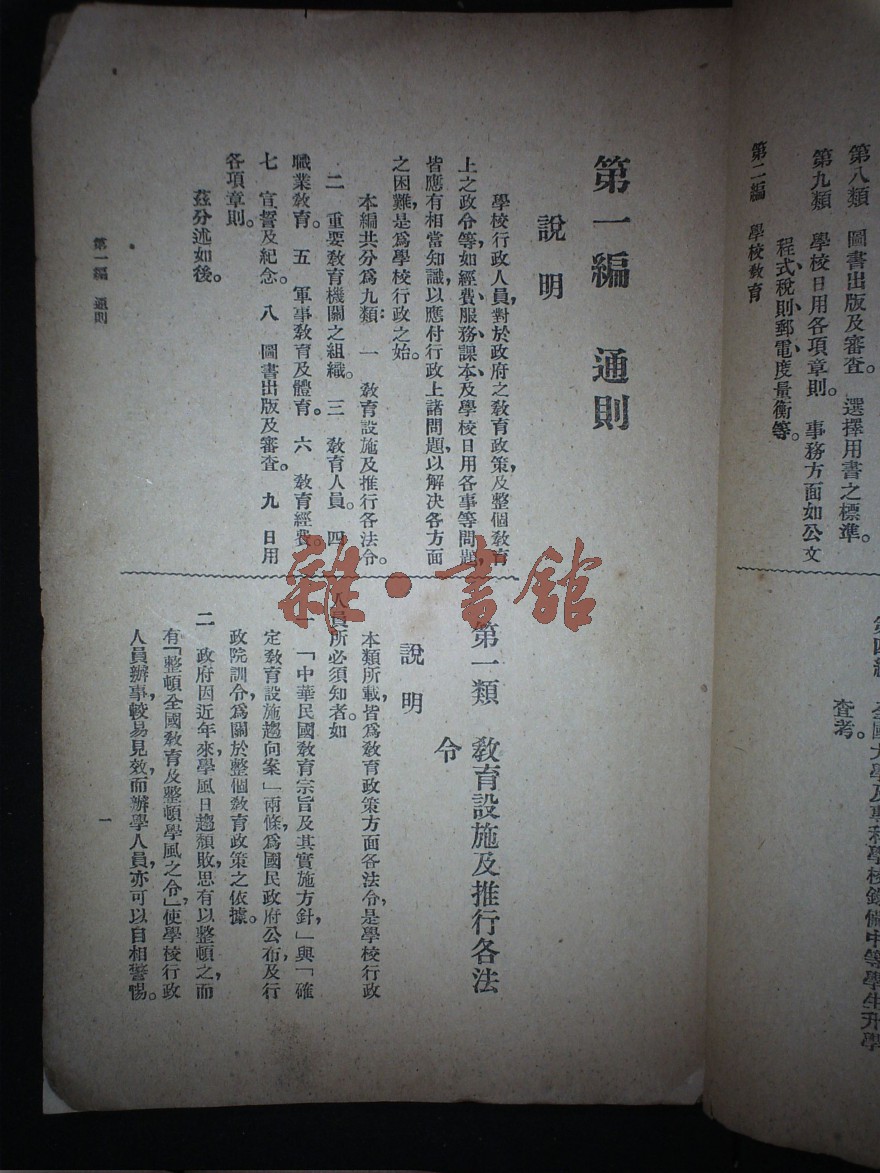 第八類　圖書出版及審查。　選擇用書之標準。
第九類　學校日用各項章則。　事務方面如公文
程式、稅則、郵電、度量衡等。
第二編　學校教育
全國大學及專科學校錄備中等學生升學
查考。
第一編　通則
說　明
學校行政人員,對於政府之敎育政策,及整個敎育
上之政令等,如經費、服務、課本、及學校日用各事等問題,
皆應有相當知識,以應付行政上諸問題,以解決各方面
之困難,是爲學校行政之始。
本編共分爲九類：　一　敎育設施及推行各法令。
二　重要敎育機關之組織。　三　敎育人員。　四
職業敎育。　五　軍事敎育及體育。　六　敎育經費。
七　宣誓及紀念。　八　圖書出版及審查。　九　日用
各項章則。
茲分述如後。
第一類　敎育設施及推行各法
令
說　明
本類所載,皆爲敎育政策方面各法令,是學校行政
人員所必須知者。如
一　「中華民國敎育宗旨及其實施方針,」與「確
定敎育設施趨向案」兩條,爲國民政府公布及行
政院訓令,爲關於整個敎育政策之依據。
二　政府因近年來,學風日趨頹敗,思有以整頓之,而
有「整頓全國敎育及整頓學風之令,」使學校行政
人員辦事,較易見效,而辦學人員,亦可以自相警惕。
第一編　通則
一
雜·書館